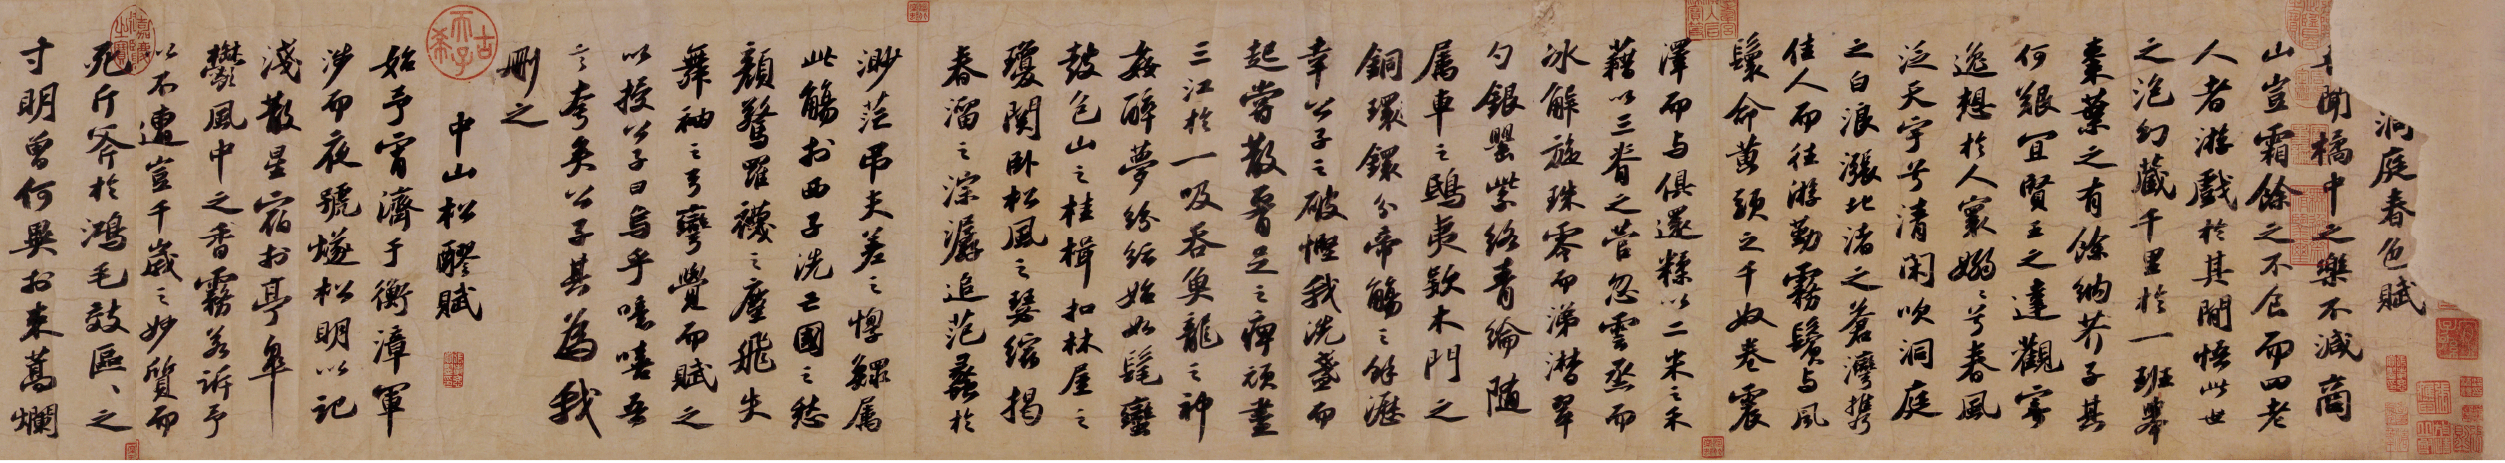 洞庭春色賦
吾聞橘中之樂不減商
山豈霜餘之不食而四老
人者游戲於其間悟此世
之泡幻藏千里於一班舉
棗葉之有餘納芥子其
何艱宜賢王之達觀寄
逸想於人寰嫋〻兮春風
泛天宇兮清閑吹洞庭
之白浪漲北渚之蒼灣携
佳人而往游勤霧鬢与風
鬟命黃頭之千奴卷震
澤而与俱還糅以二米之禾
藉以三脊之菅忽雲烝而
冰解旋珠零而涕潸翠
勺銀罌紫絡青綸隨
属車之鴟夷款木門之
銅環鏁分帝觴之餘瀝
幸公子之破慳我洗盞而
起嘗散腰足之痹頑盡
三江於一吸吞魚龍之神
姦醉夢紛紜始如髦蠻
鼓包山之桂楫扣林屋之
瓊関卧松風之瑟縮揭
春溜之淙潺追范蠡於
渺茫弔夫差之惸鰥属
此觴於西子洗亡國之愁
顏驚羅襪之塵飛失
舞袖之弓彎覺而賦之
以授公子曰烏乎噫嘻吾
言夸矣公子其為我
刪之
中山松醪賦
始予宵濟于衡漳軍
涉而夜號燧松明以記
淺散星宿於亭皐
欝風中之香霧若訴予
以不遭豈千歲之妙質而
死斤斧於鴻毛效區〻之
寸明曾何異於束蒿爛
古希天子